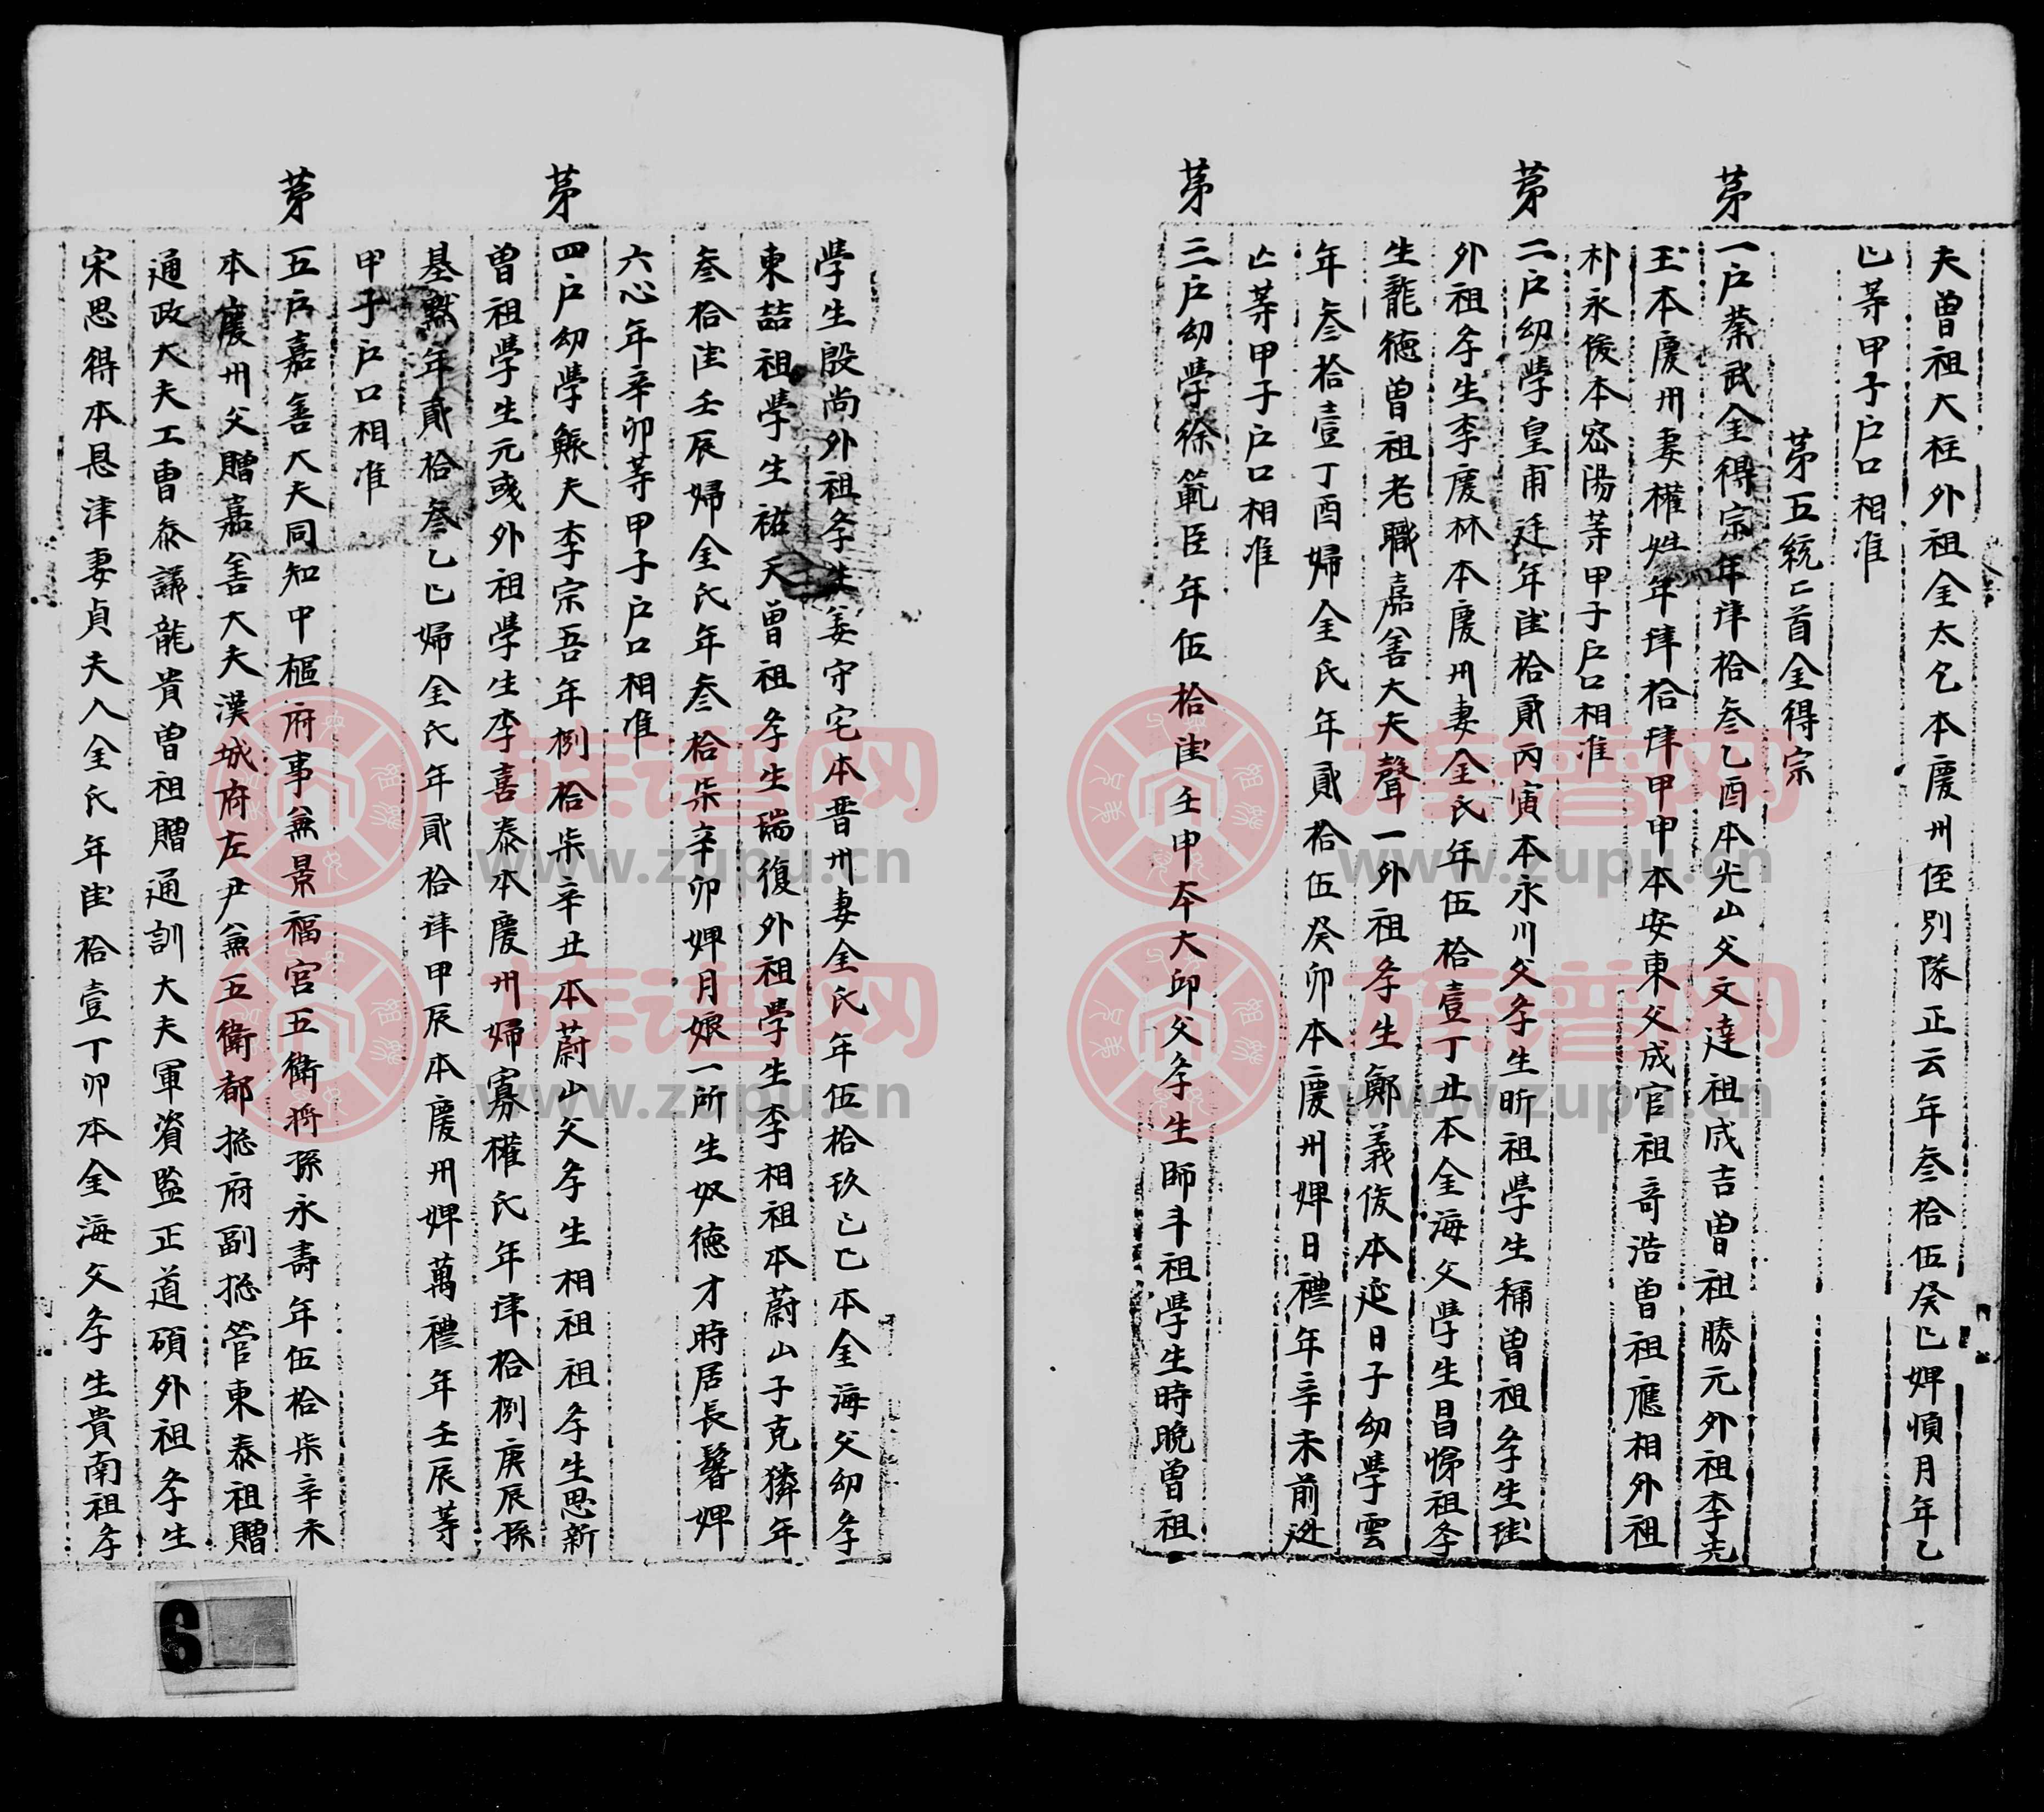 夫曾祖大柱外祖金太乞本慶州侄別隊正云年叁拾伍癸巳婢順月年乙
巳等甲子户口相准
第五統统首金得宗
第一户業武金得宗年肆拾叁乙酉本光山父文達祖成吉曾祖勝元外祖李先
玉本慶州妻權姓年肆拾肆甲申本安東父成官祖奇浩曾祖應相外祖
朴永俊本密陽等甲子户口相准
第二户幼學皇甫廷年陸拾貳丙寅本永川父學生昕祖學生稱曾祖學生
外祖學生李慶林本慶州妻金氏年伍拾壹丁丑本金海父學生昌悌祖學
生龍德曾祖老職嘉善大夫聲一外祖學生鄭義俊本延日子幼學雲
年叁拾壹丁酉婦金氏年貳拾伍癸卯本慶州婢日禮年辛未前逃
亡等甲子户口相准
第三户幼學徐範臣年伍拾陸壬申本大邱父學生師斗祖學生時晚曾祖
學生殷尚外祖學生姜守宅本晋州妻金氏年伍拾玖己巳本金海父幼學
東喆祖學生祐天曾祖學生瑞復外祖學生李相祖本蔚山子克獜年
叁拾陸壬辰婦金氏年叁拾柒辛卯婢月娘一所生奴德才時居長鬐婢
六心年辛卯等甲子户口相准
第四户幼學鰥夫李宗吾年捌拾柒辛丑本蔚山父學生相祖祖學生思新
曾祖學生元彧外祖學生李喜泰本慶州婦寡權氏年肆拾捌庚辰孫
基默年貳拾叁乙巳婦金氏年貳拾肆甲辰本慶州婢萬禮年壬辰等
甲子户口相准
第五户嘉善大夫同知中樞府事兼景福宮五衛將孫永壽年伍拾柒辛未
本慶州父贈嘉善大夫漢城府左尹兼五衛都摠府副摠管東泰祖贈
通政大夫工曹叅議龍貴曾祖贈通訓大夫軍資監正道碩外祖學生
宋思得本恩津妻貞夫人金氏年陸拾壹丁卯本金海父學生貴南祖學
6
族谱网
www.zupu.cn
族谱网
www.zupu.cn
族谱网
www.zupu.cn
族谱网
www.zupu.cn